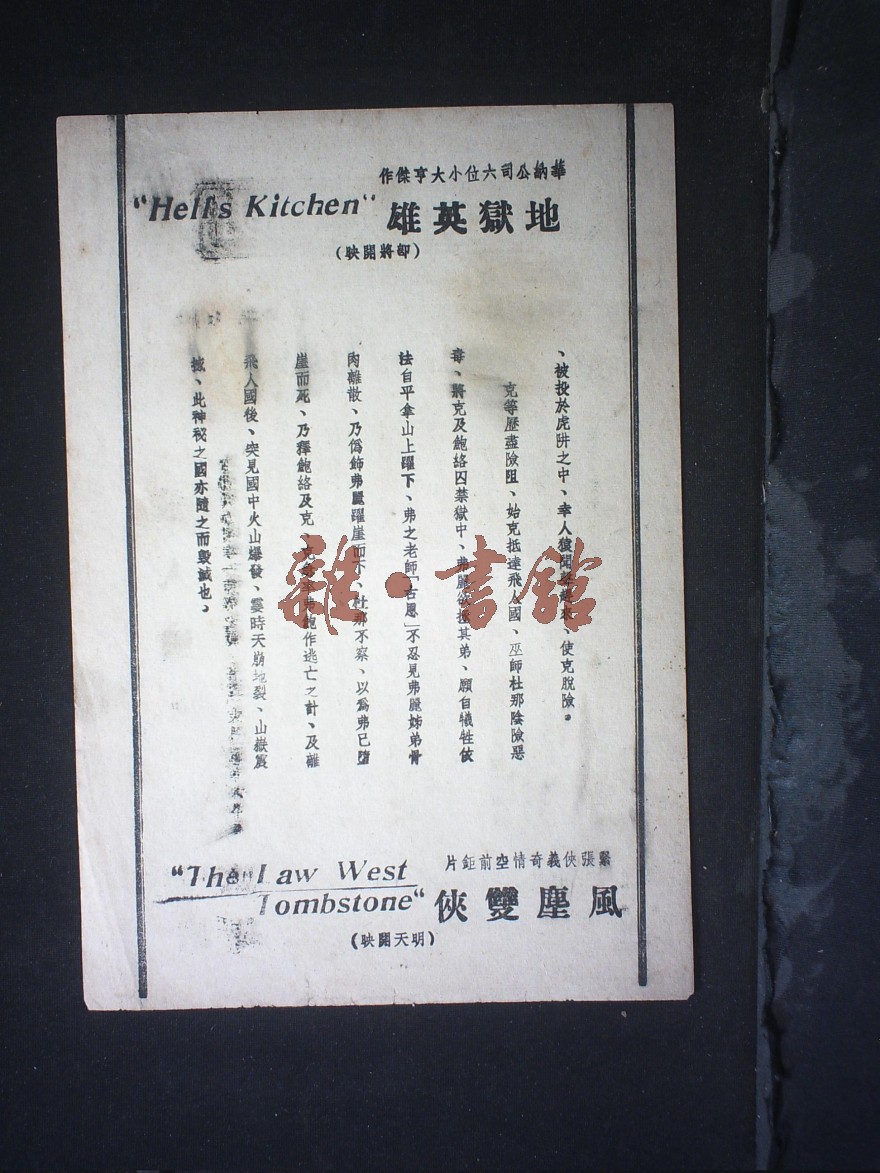 華納公司六位小大亨傑作
地獄英雄 "Hell's Kitchen"
(即將開映)
、被投於虎阱之中、幸人猿聞
、使克脫險。
克等歷盡險阻、始克抵達飛人國、巫師杜那陰險惡
毒、將克及鮑絡囚禁獄中、弗麗欲拯其弟、願自犧牲依
法自平拿山上躍下、弗之老師「古恩」不忍見弗麗姊弟骨
肉離散、乃偽飾弗麗躍崖而下、杜那不察、以為弗已墮
崖而死、乃釋鮑絡及克、弗鮑作逃亡之計、及離
飛人國後、突見國中火山爆發、霎時天崩地裂、山嶽震
撼、此神祕之國亦隨之而毀滅也。
緊張俠義奇情空前鉅片
風塵雙俠 "The Law West
Tombstone"
(明天開映)
雜·書館